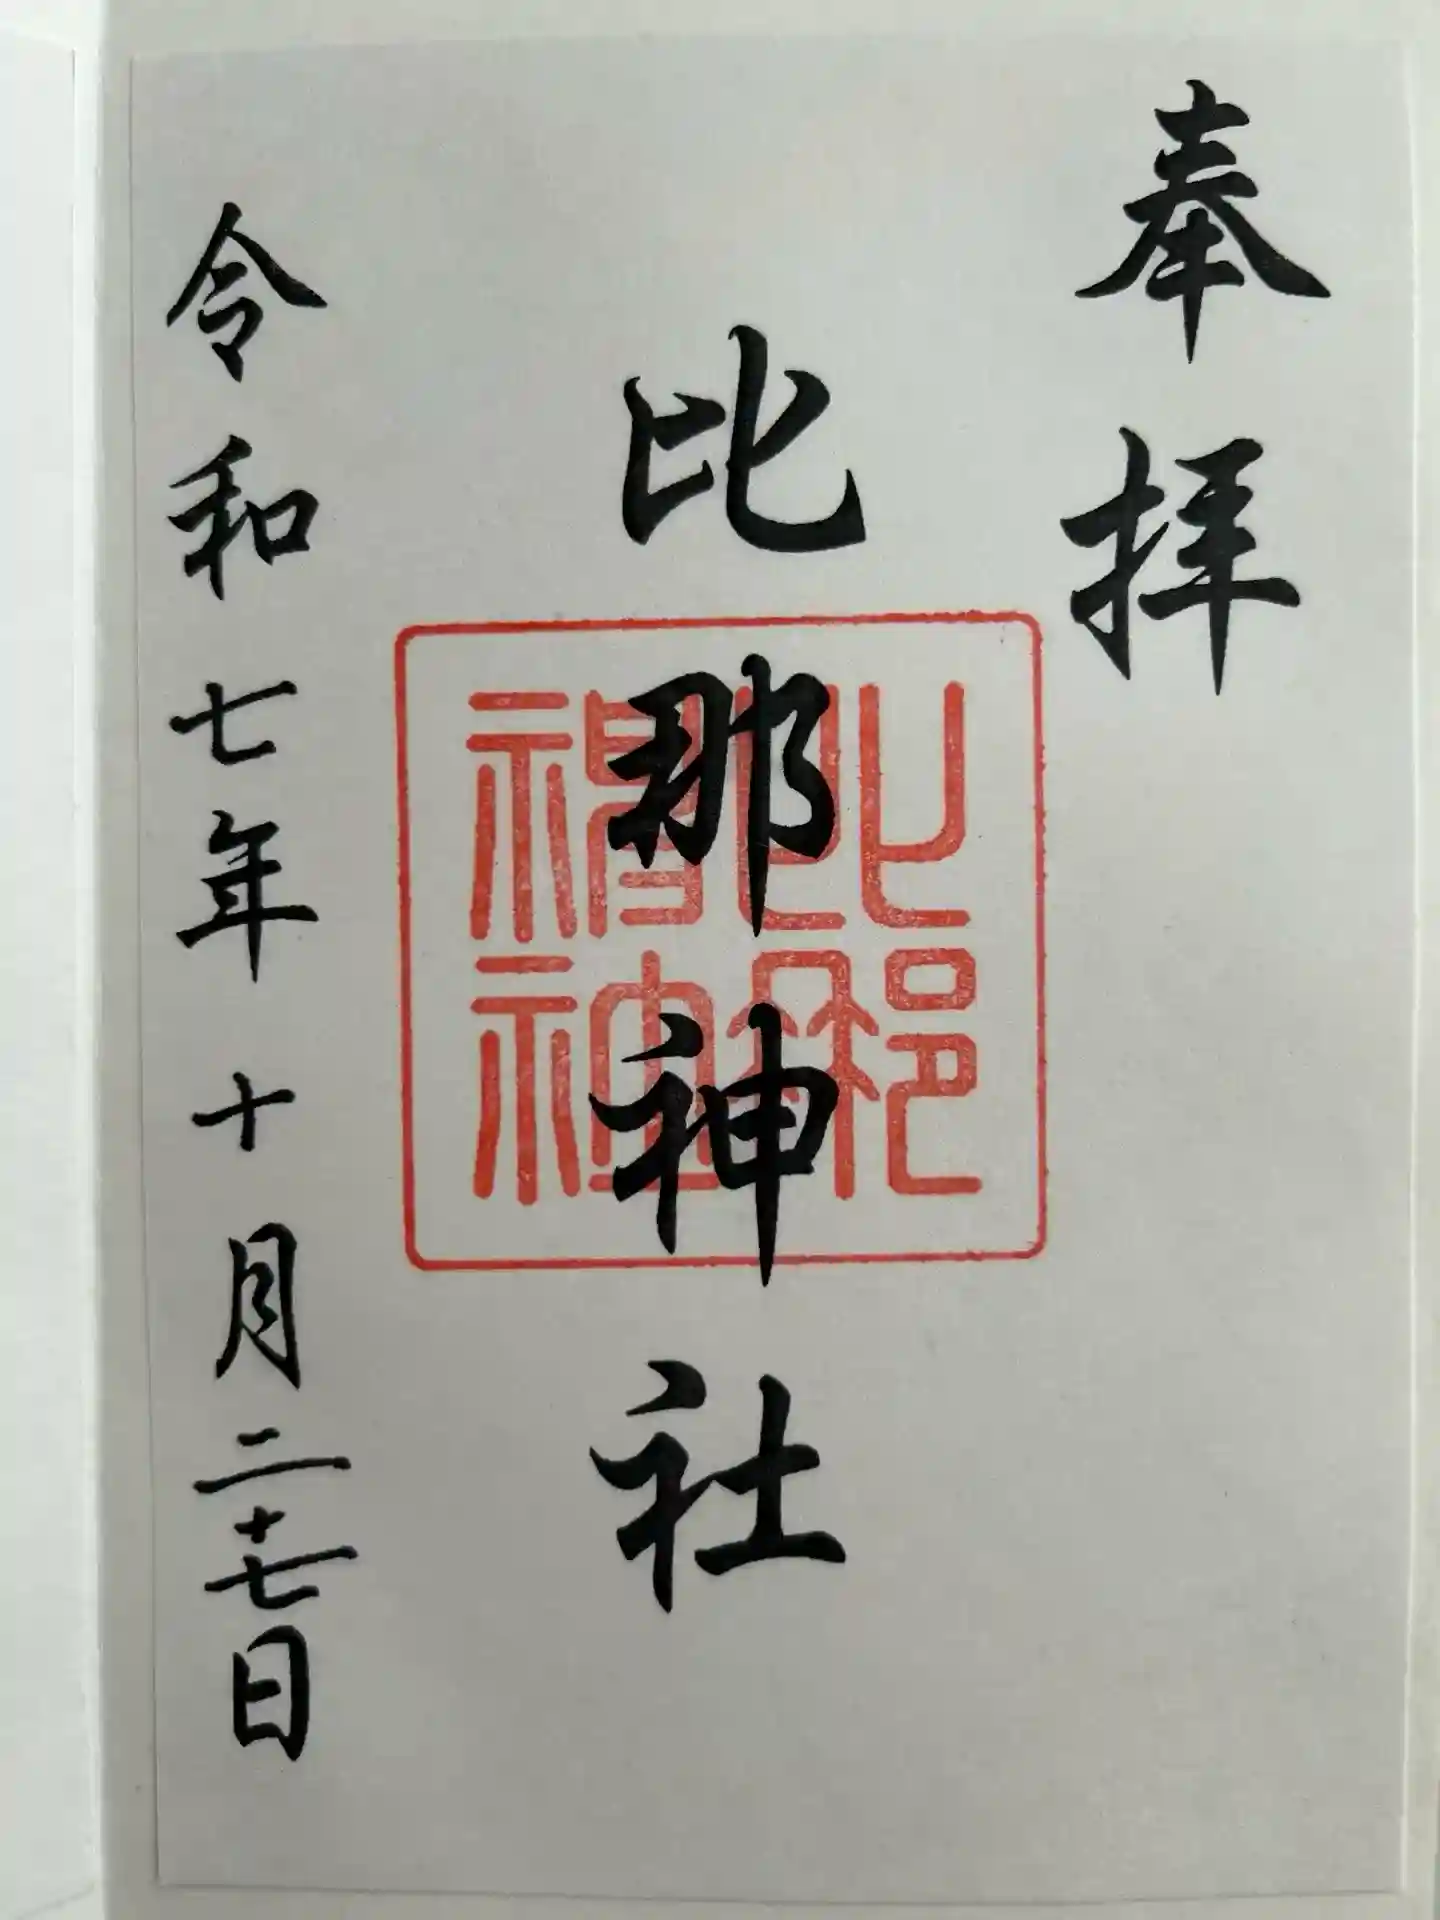 奉拝
比那神社
比那
神社
令和七年十月二十七日